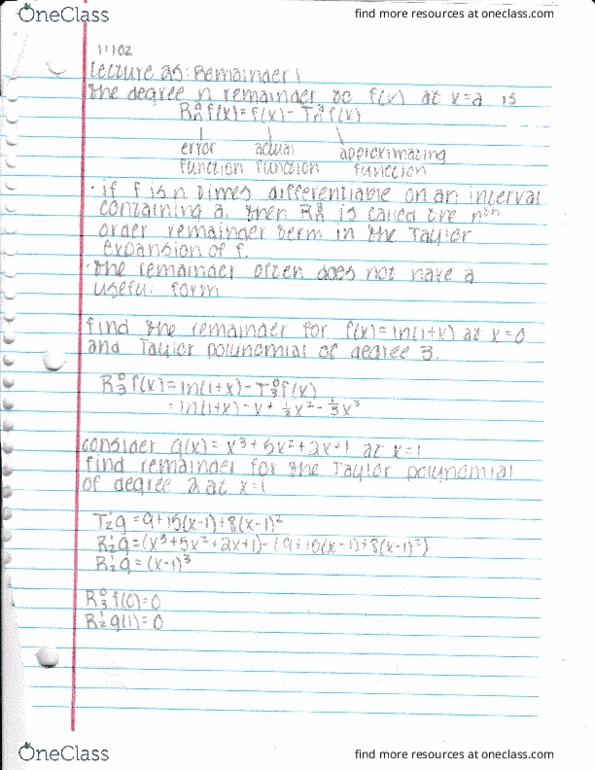 OneClass
find more resources at oneclass.com
11102
Lecture 25: Remainder 1
The degree n remainder of f(x) at x=a is
Rₙᵃf(x)=f(x)-Tₙᵃf(x)
error actual approximating
function function function
· if f is n times differentiable on an interval
containing a, then Rₙᵃ is called the nᵗʰ
order remainder term in the Taylor
expansion of f.
· The remainder often does not have a
useful form
find the remainder for f(x)=ln(1+x) at x=0
and Taylor polynomial of degree 3.
R₃⁰f(x)=ln(1+x)-T₃⁰f(x)
=ln(1+x)-x+½x²-⅓x³
consider g(x)=x³+5x²+2x+1 at x=1
find remainder for the Taylor polynomial
of degree 2 at x=1
T₂¹g=9+15(x-1)+8(x-1)²
R₂¹g=(x³+5x²+2x+1)-(9+15(x-1)+8(x-1)²)
R₂¹g=(x-1)³
R₃⁰f(0)=0
R₂¹g(1)=0
OneClass
find more resources at oneclass.com